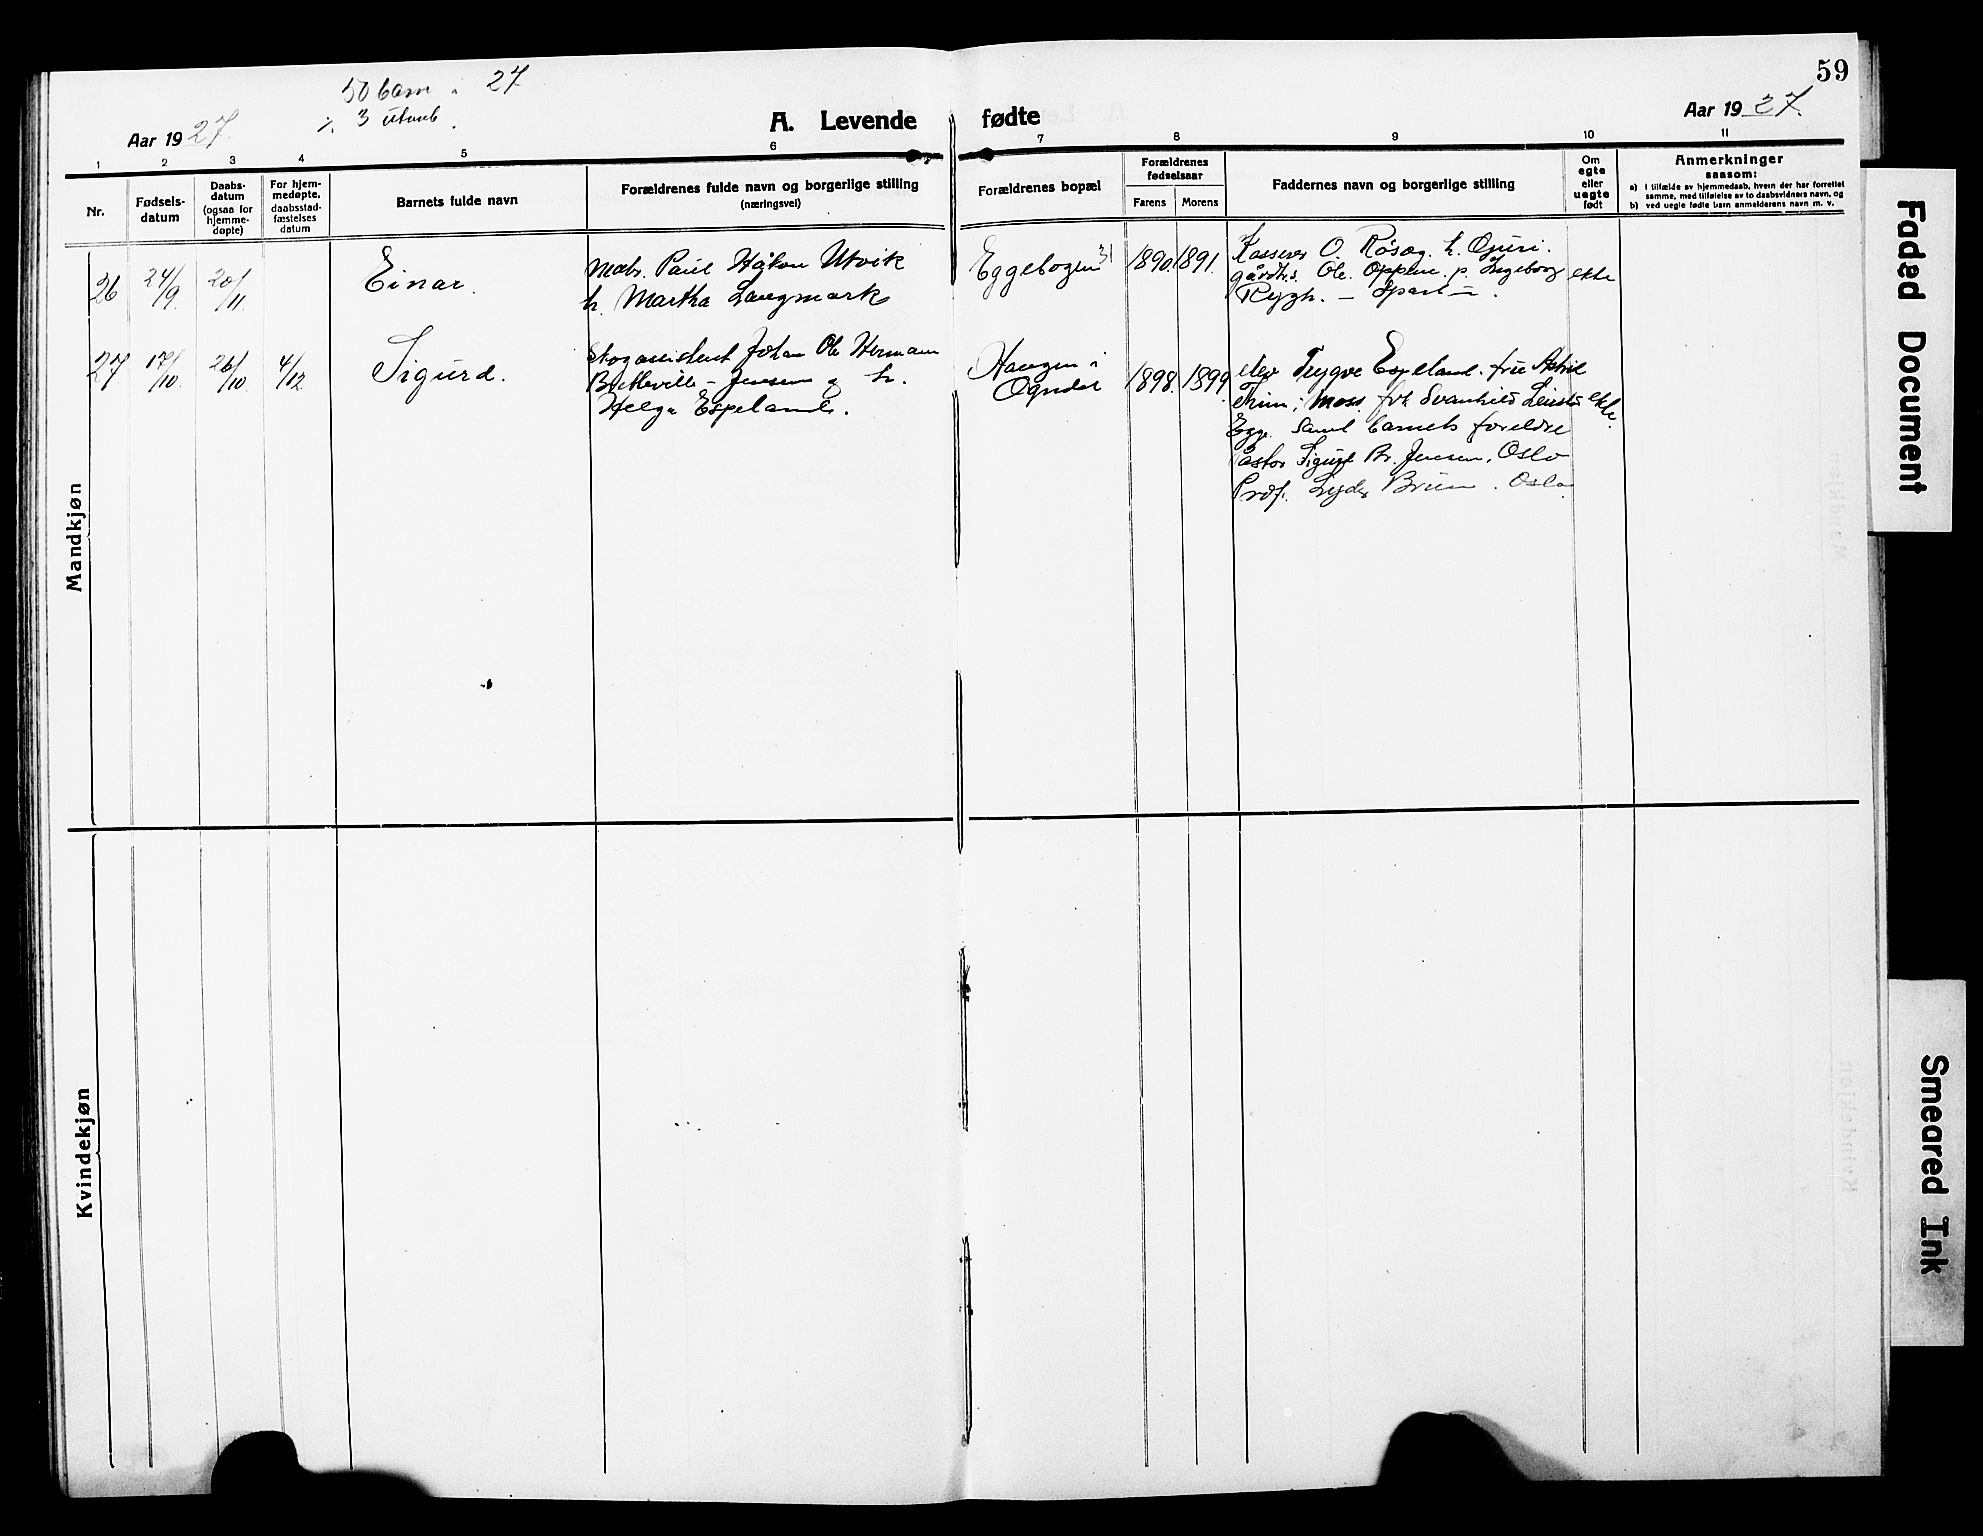 59
50 barn i 27
3 utenb.
Aar 1927.
A. Levende fødte
Aar 1927.
1 2 3 4 5 6 7 8 9 10 11
Nr.
Fødsels-
datum
Daabs-
datum
(ogsaa for
hjemme-
døpte)
For hjem-
medøpte,
daabsstad-
fæstelses
datum
Barnets fulde navn
Forældrenes fulde navn og borgerlige stilling
(næringsvei)
Forældrenes bopæl
Forældrenes
fødselsaar
Farens Morens
Faddernes navn og borgerlige stilling
Om
egte
eller
uegte
født
Anmerkninger
saasom:
a) i tilfælde av hjemmedaab, hvem der har forrettet
samme, med tilføielse av to daabsvidners navn, og
b) ved uegte fødte barn anmelderens navn m. v.
Mandkjøn
26 24/9 20/11 Einar.
Paul Håkon Utvik
h. Martha Langmark
Eggebogen 31 1890. 1891.
Kasserer O. Rösæg. h. Guri.
gårdbr. Ole. Oppem. p. Ingeborg
Rygh. —
ekte
27 17/10. 26/10. 4/12 Sigurd.
Skogassistent Johan Ole Hermann
Bretteville - Jensen og h.
Helga Espeland.
Haugen i
Ogndal
1898. 1899.
elev Trygve Espeland. fru Astrid
i Moss. frk Svanhild
Egge. samt barnets foreldre
Pastor Sigurd Br. Jensen, Oslo
Prof. Lyder Brun. Oslo.
ekte.
Kvindekjøn
Faded Document
Smeared Ink